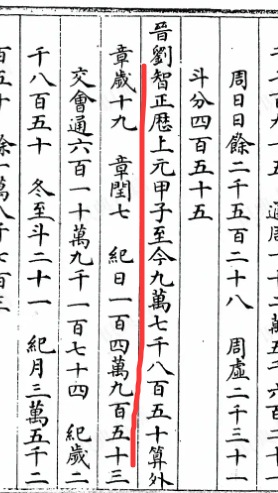 周日日餘二千五百二十八　周虛二千三十一
斗分四百五十五
晉劉智正暦上元甲子至今九萬七千八百五十算外
章歲十九　章閏七　紀日一百四萬九百五十三
交會通六百一十萬九千一百七十四　紀歲二
千八百五十　冬至斗二十一　紀月三萬五千二
百五十　餘一萬八千七百三